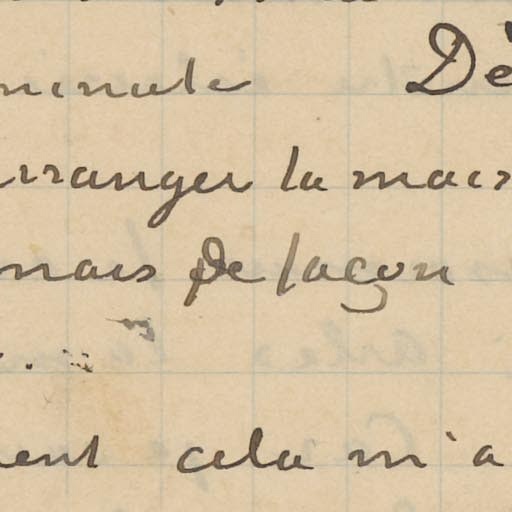 minute Dè
rranger la mais
mais de façon
ent cela m'a